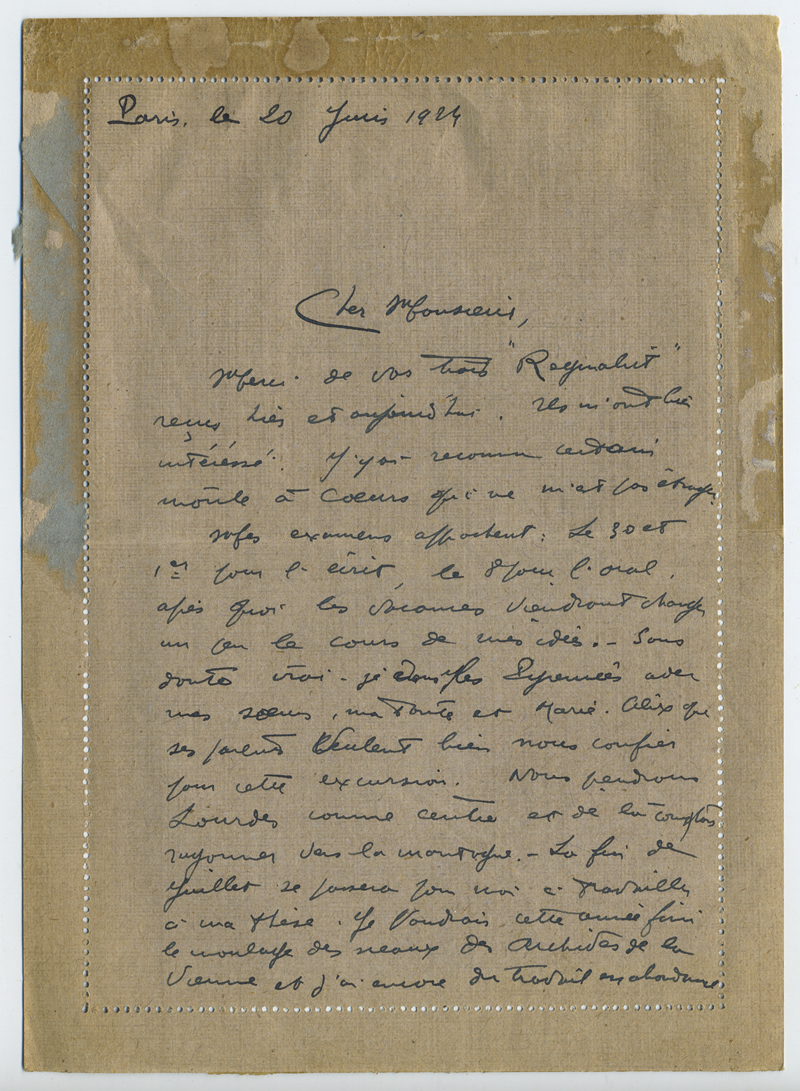 Paris, le 20 Juin 1924
Cher Monsieur,
Merci de vos trois "Regnabit"
reçus hier et aujourd'hui. Ils m'ont bien
intéressé. J'y ai reconnu certain
moule à Coeurs qui ne m'est pas étranger.
Mes examens approchent : Le 30 et
1er pour l'écrit, le 8 pour l'oral.
après quoi les vacances viendront changer
un peu le cours de mes idées. - Sans
doute irai-je dans les Pyrénées avec
mes soeurs, ma tante et Marie. Alix que
ses parents veulent bien nous confier
pour cette excursion. Nous prendrons
Lourdes comme centre et de là comptons
rayonner vers la montagne. - La fin de
Juillet se passera pour moi à travailler
à ma thèse. Je voudrais cette année finir
le moulage des sceaux des Archives de la
Vienne et j'ai encore du travail en abondance